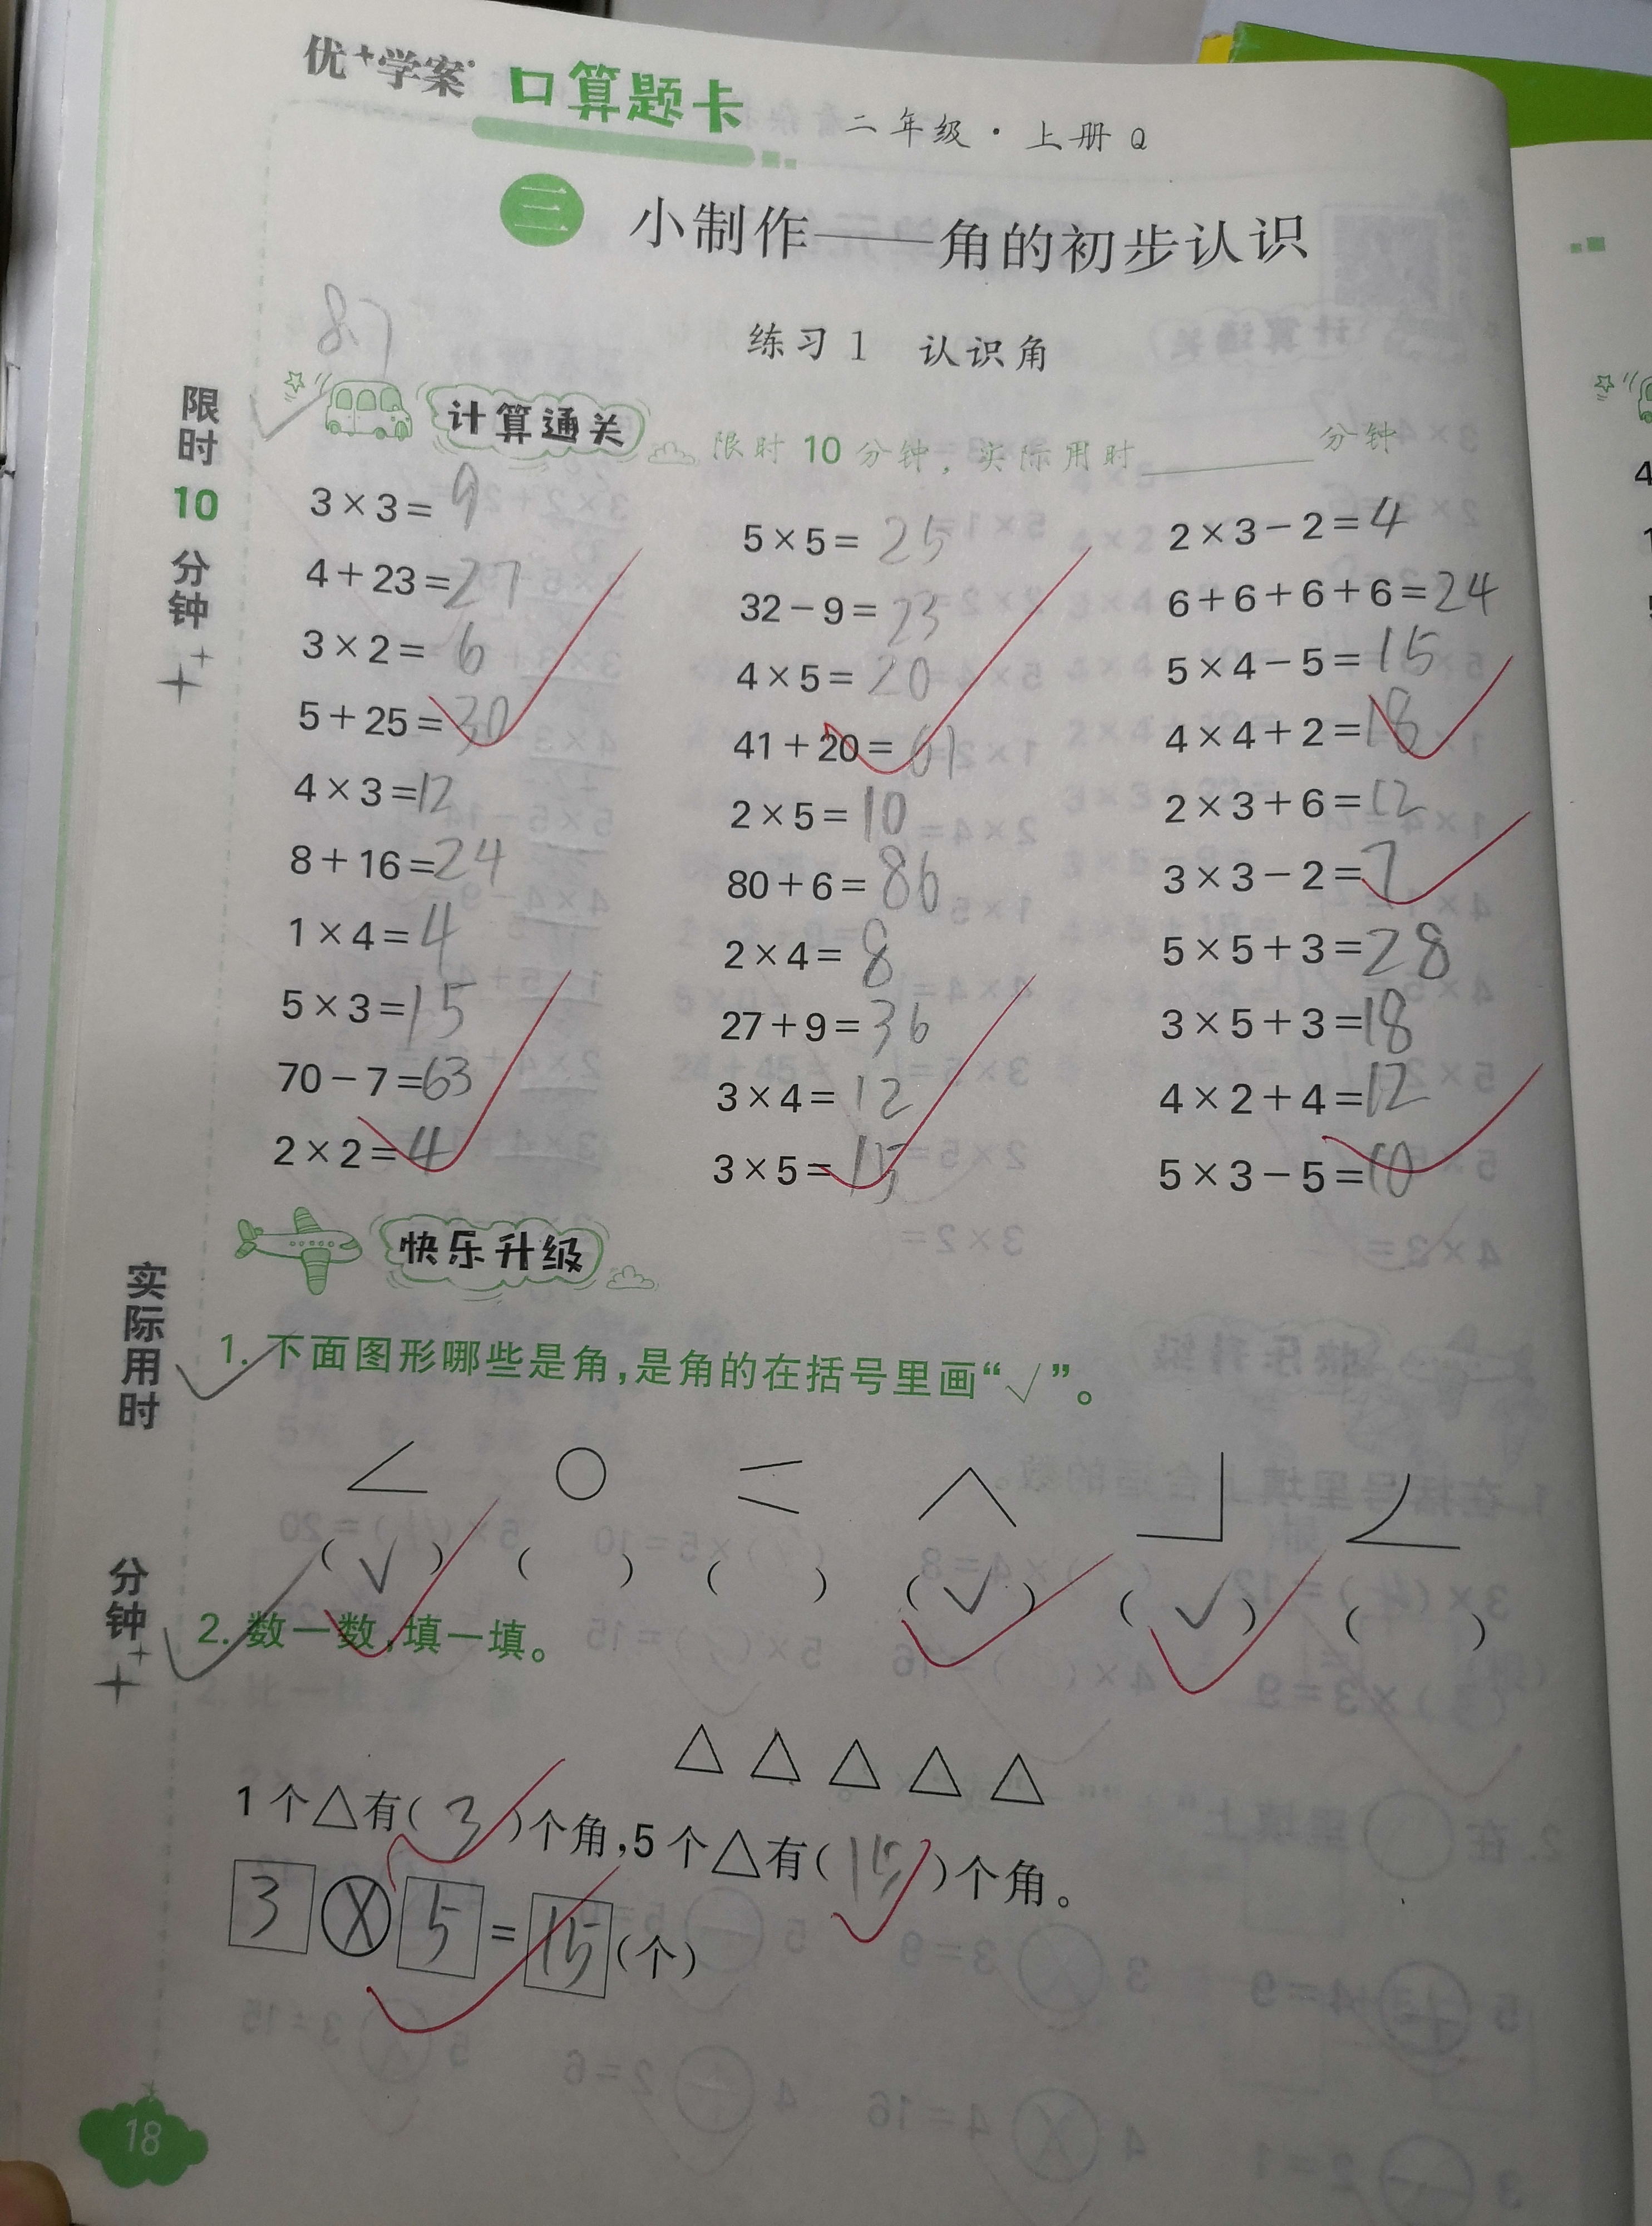 优+学案 口算题卡 二年级·上册 Q
三 小制作——角的初步认识
87
练习1 认识角
计算通关 限时10分钟，实际用时 分钟
限时10分钟
3×3=9
4+23=27
3×2=6
5+25=30
4×3=12
8+16=24
1×4=4
5×3=15
70-7=63
2×2=4
5×5=25
32-9=23
4×5=20
41+20=61
2×5=10
80+6=86
2×4=8
27+9=36
3×4=12
3×5=15
2×3-2=4
6+6+6+6=24
5×4-5=15
4×4+2=18
2×3+6=12
3×3-2=7
5×5+3=28
3×5+3=18
4×2+4=12
5×3-5=10
快乐升级
实际用时
分钟
1. 下面图形哪些是角，是角的在括号里画“√”。
(√) ( ) ( ) (√) (√) ( )
2. 数一数，填一填。
1个△有(3)个角，5个△有(15)个角。
3×5=15(个)
18